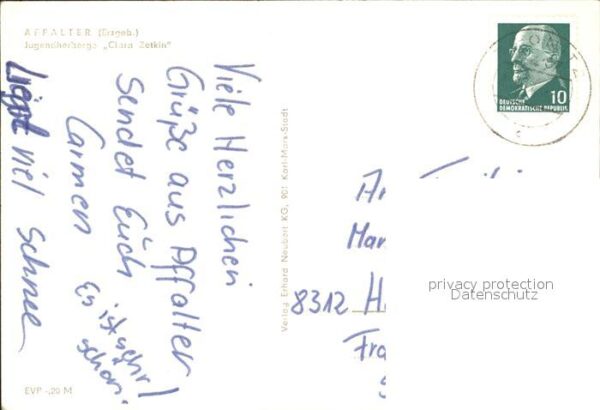 AFFALTER (Erzgeb.)
Jugendherberge „Clara Zetkin"
Viele Herzlichen
Grüße aus Affalter
Sendet Euch
Carmen
Es ist sehr
schön!
Liegt viel Schnee
EVP -,20 M
Verlag Erhard Neubert KG, 901 Karl-Marx-Stadt
10
DEUTSCHE
DEMOKRATISCHE REPUBLIK
8312 H
privacy protection
Datenschutz